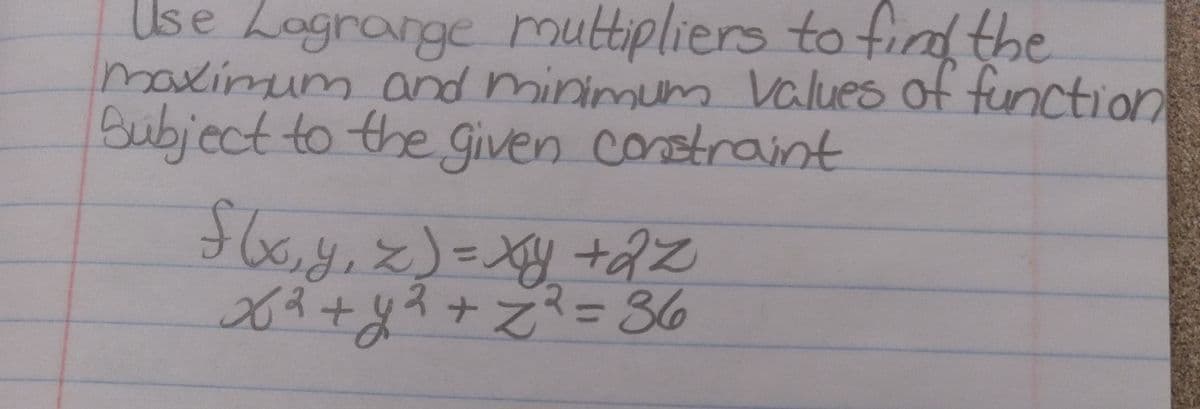 Use Lagrange multipliers to find the
maximum and minimum values of function
Subject to the given constraint
f(x,y,z)=xy+2z
x²+y²+z²=36